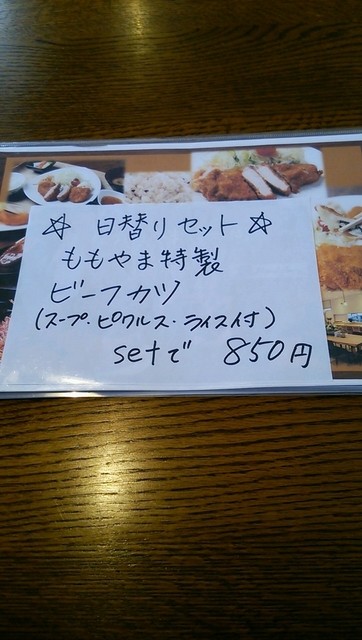 ☆ 日替りセット ☆
ももやま特製
ビーフカツ
(スープ・ピクルス・ライス付)
setで 850円